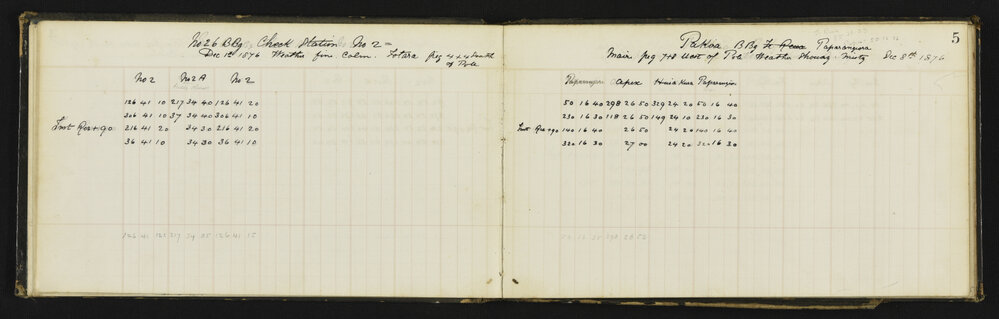 No 26 B Bg Check Station No 2 =
Dec 1st 1876 Weather fine. Calm. Totara peg 4 x 4 South
of Pole
No 2 No 2 A No 2
126 41 10 217 34 40 126 41 20
306 41 10 37 34 40 306 41 10
Inst Rev + 90 216 41 20 34 30 216 41 20
36 41 10 34 30 36 41 10
126 41 217 34 35 126 41 15
5
Pukoa B Bg Paparangiora
Mair peg 7 x 8 West of Weather Showery Misty Dec 8th 1876
Paparangiora Apex Huia Kura Paparangiora
50 16 40 298 26 50 329 24 20 50 16 40
230 16 30 118 26 50 149 24 10 230 16 30
Inst Rev + 90 140 16 40 26 50 24 20 140 16 40
320 16 30 27 00 24 20 320 16 30
50 16 35 298 26 52